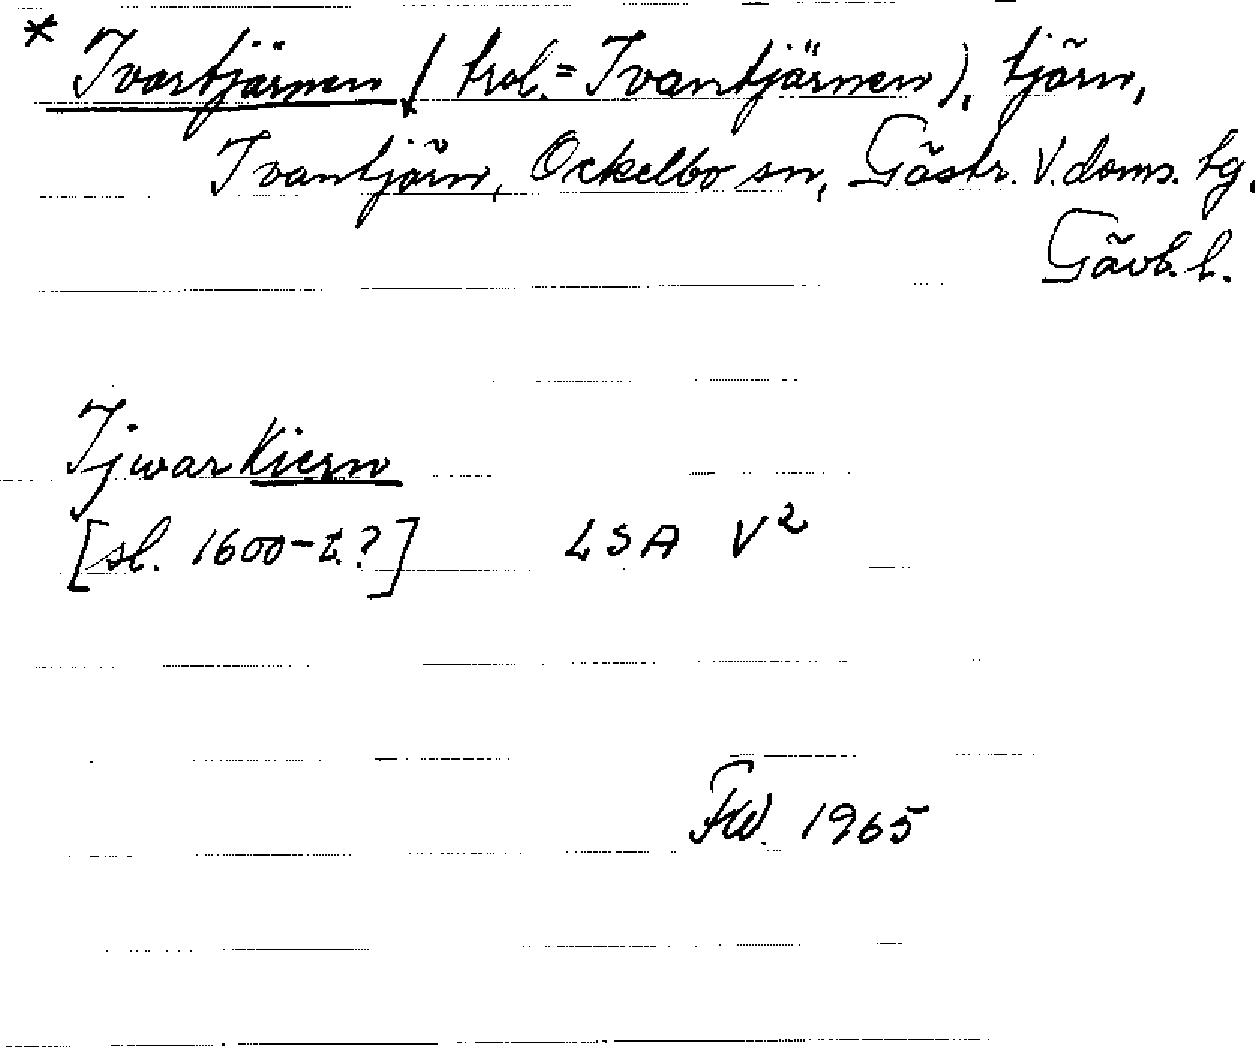 * Ivartjärnen (trol. = Ivantjärnen), tjärn,
Ivantjärn, Ockelbo sn, Gästr. V. doms. tg.
Gävb. l.
Ijwar Kiern
[sl. 1600-t.?] LSA V²
FW. 1965